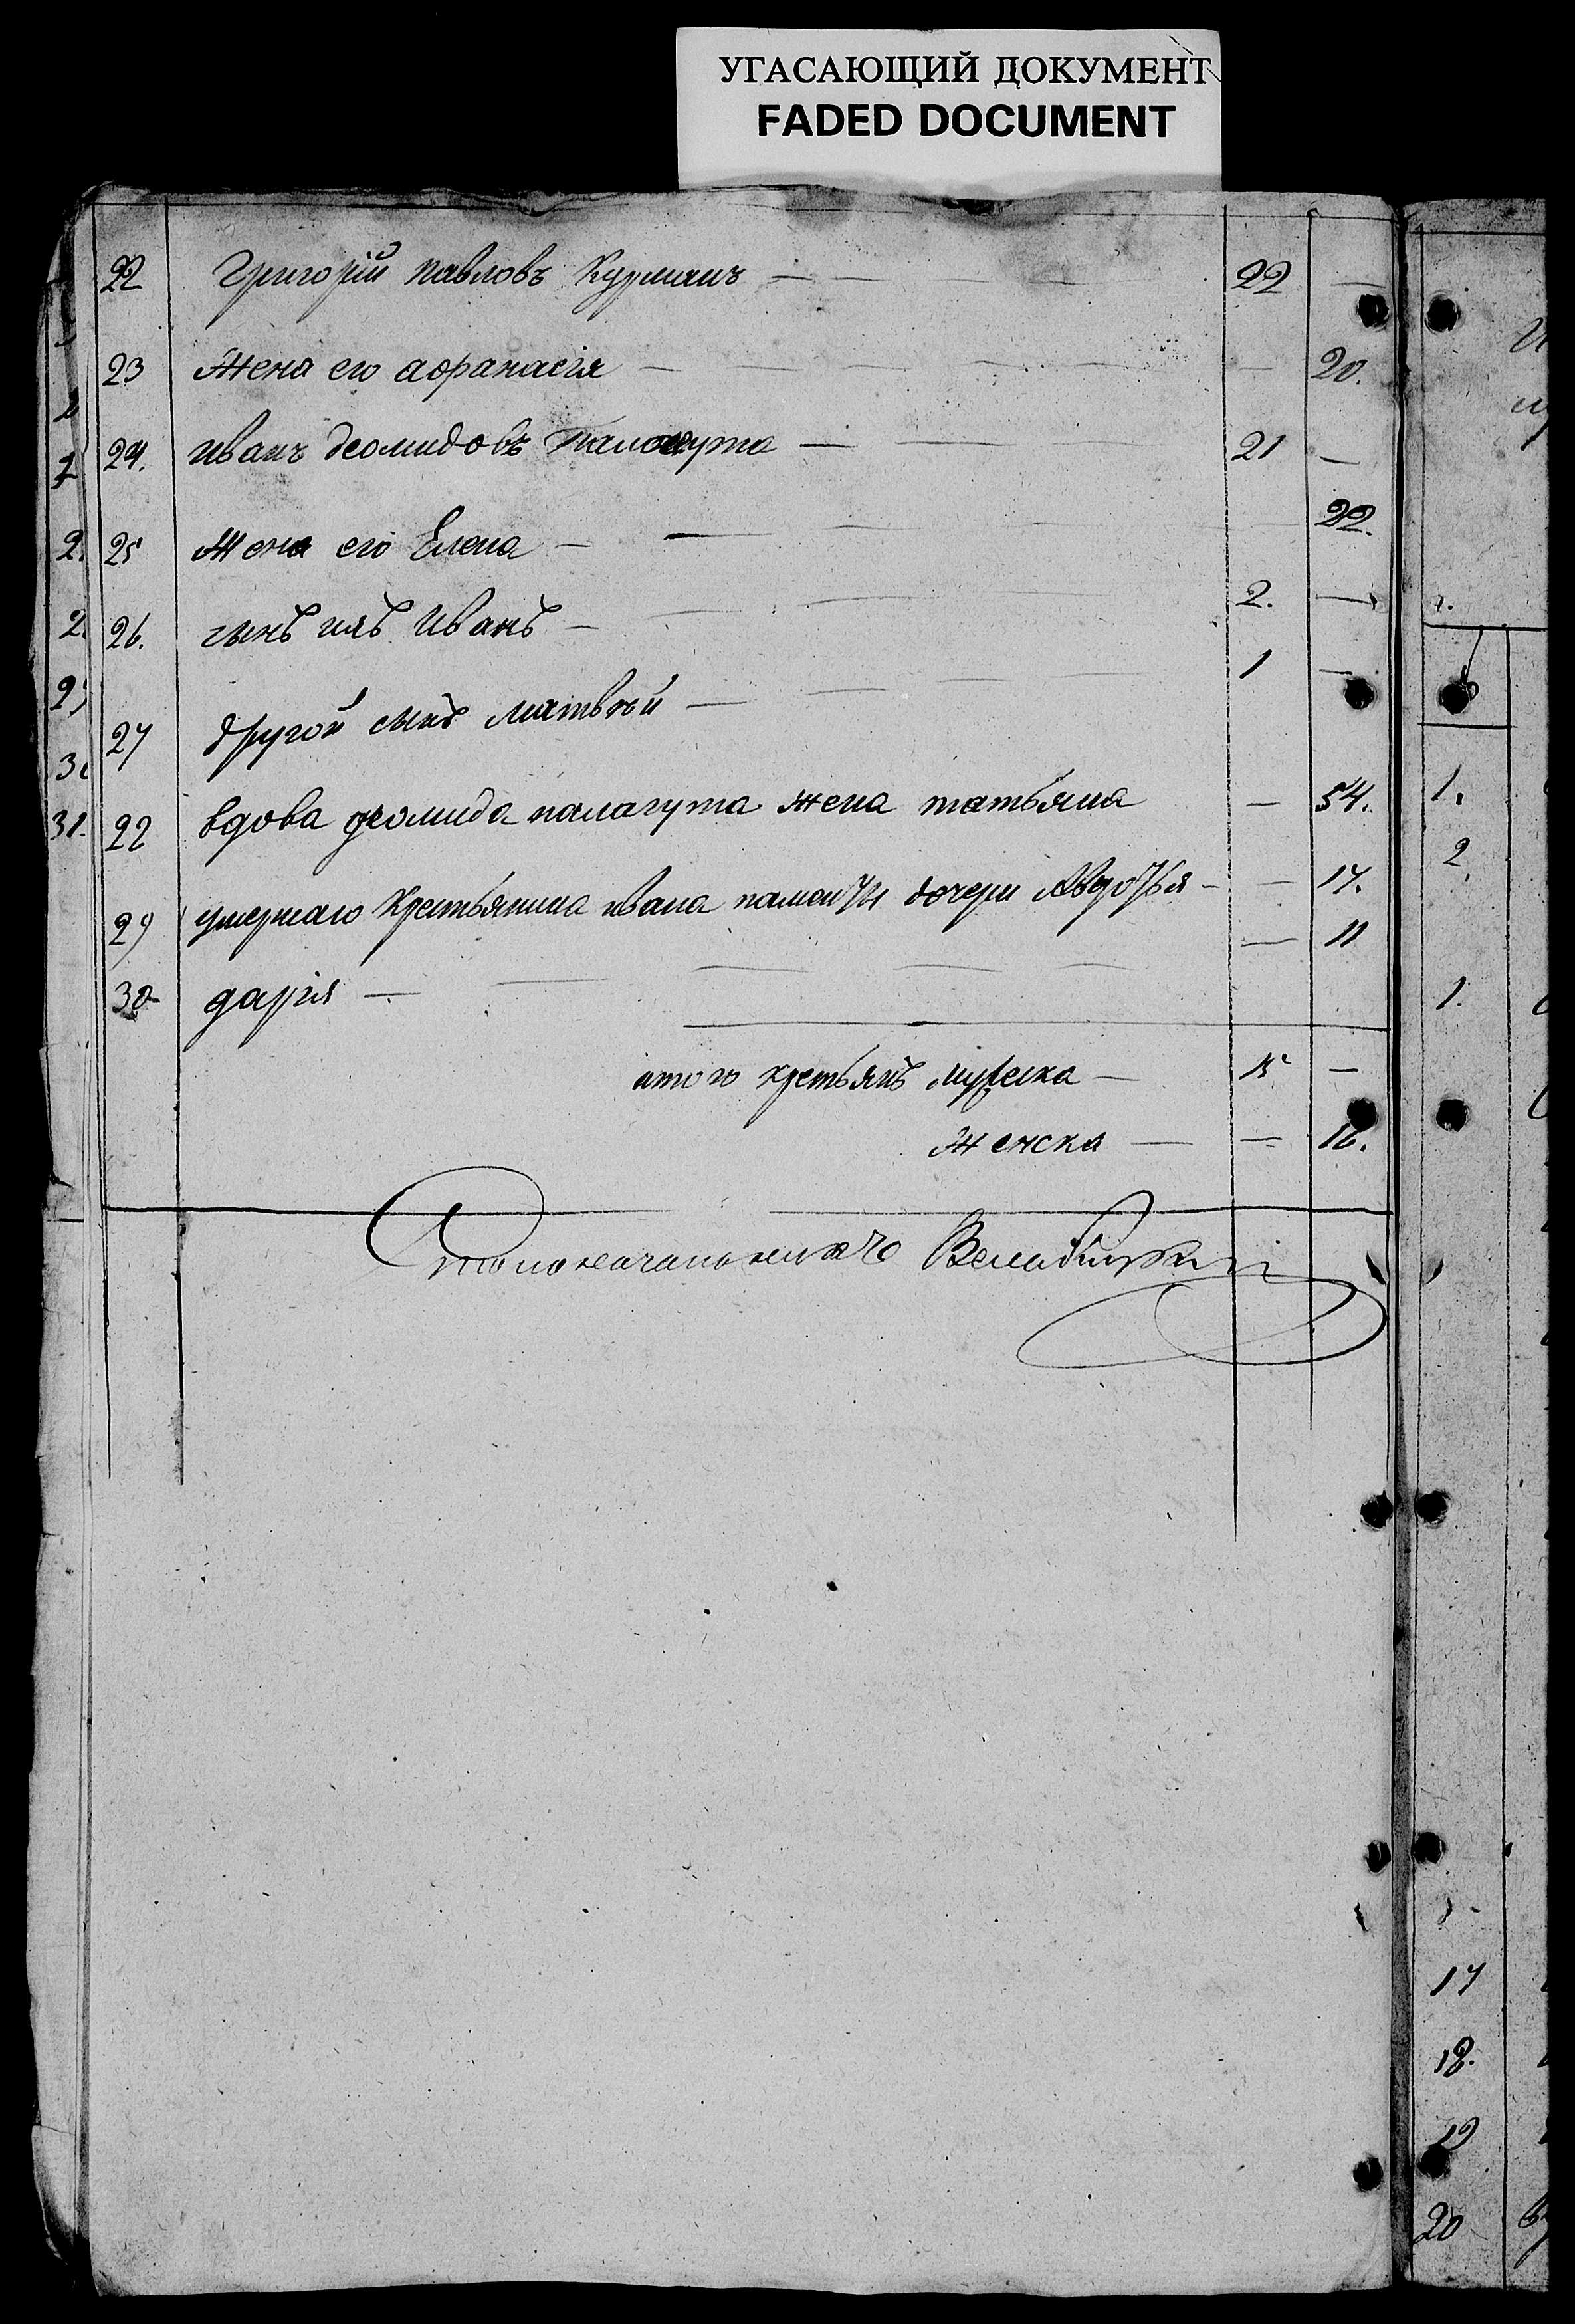 УГАСАЮЩИЙ ДОКУМЕНТ
FADED DOCUMENT
22 Григорій павловъ Курманъ — 22 —
23 Жена его афанасія — — 20.
24. иванъ деомидовъ палагута — 21 —
25 Жена его Елена — 22.
26. сынъ ихъ Иванъ — 2. —
27 другой сынъ матвѣй — 1 —
22 вдова деомида палагута жена татьяна — 54.
29 умершаго крестьянина ивана дочери Авдотья — — 17.
30 дарія — — 11
итого крестьянъ мужеска — 15 —
Женска — — 16.
Столоначальникъ
1.
2.
1.
17
18.
19
20